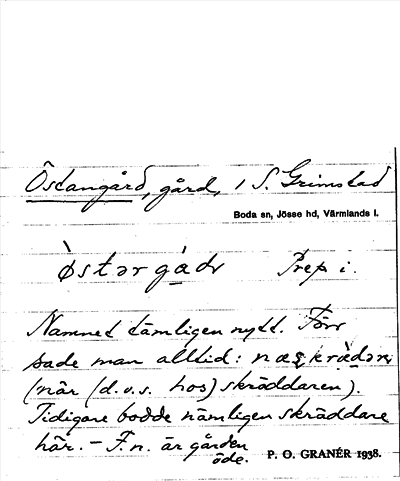 Östangård, gård, 1 S. Grimstad
Boda sn, Jösse hd, Värmlands l.
Prep i.
Namnet tämligen nytt. Förr
sade man alltid:
(när (d.v.s. hos) skräddaren).
Tidigare bodde nämligen skräddare
här. – F.n. är gården
öde.
P. O. GRANÉR 1938.